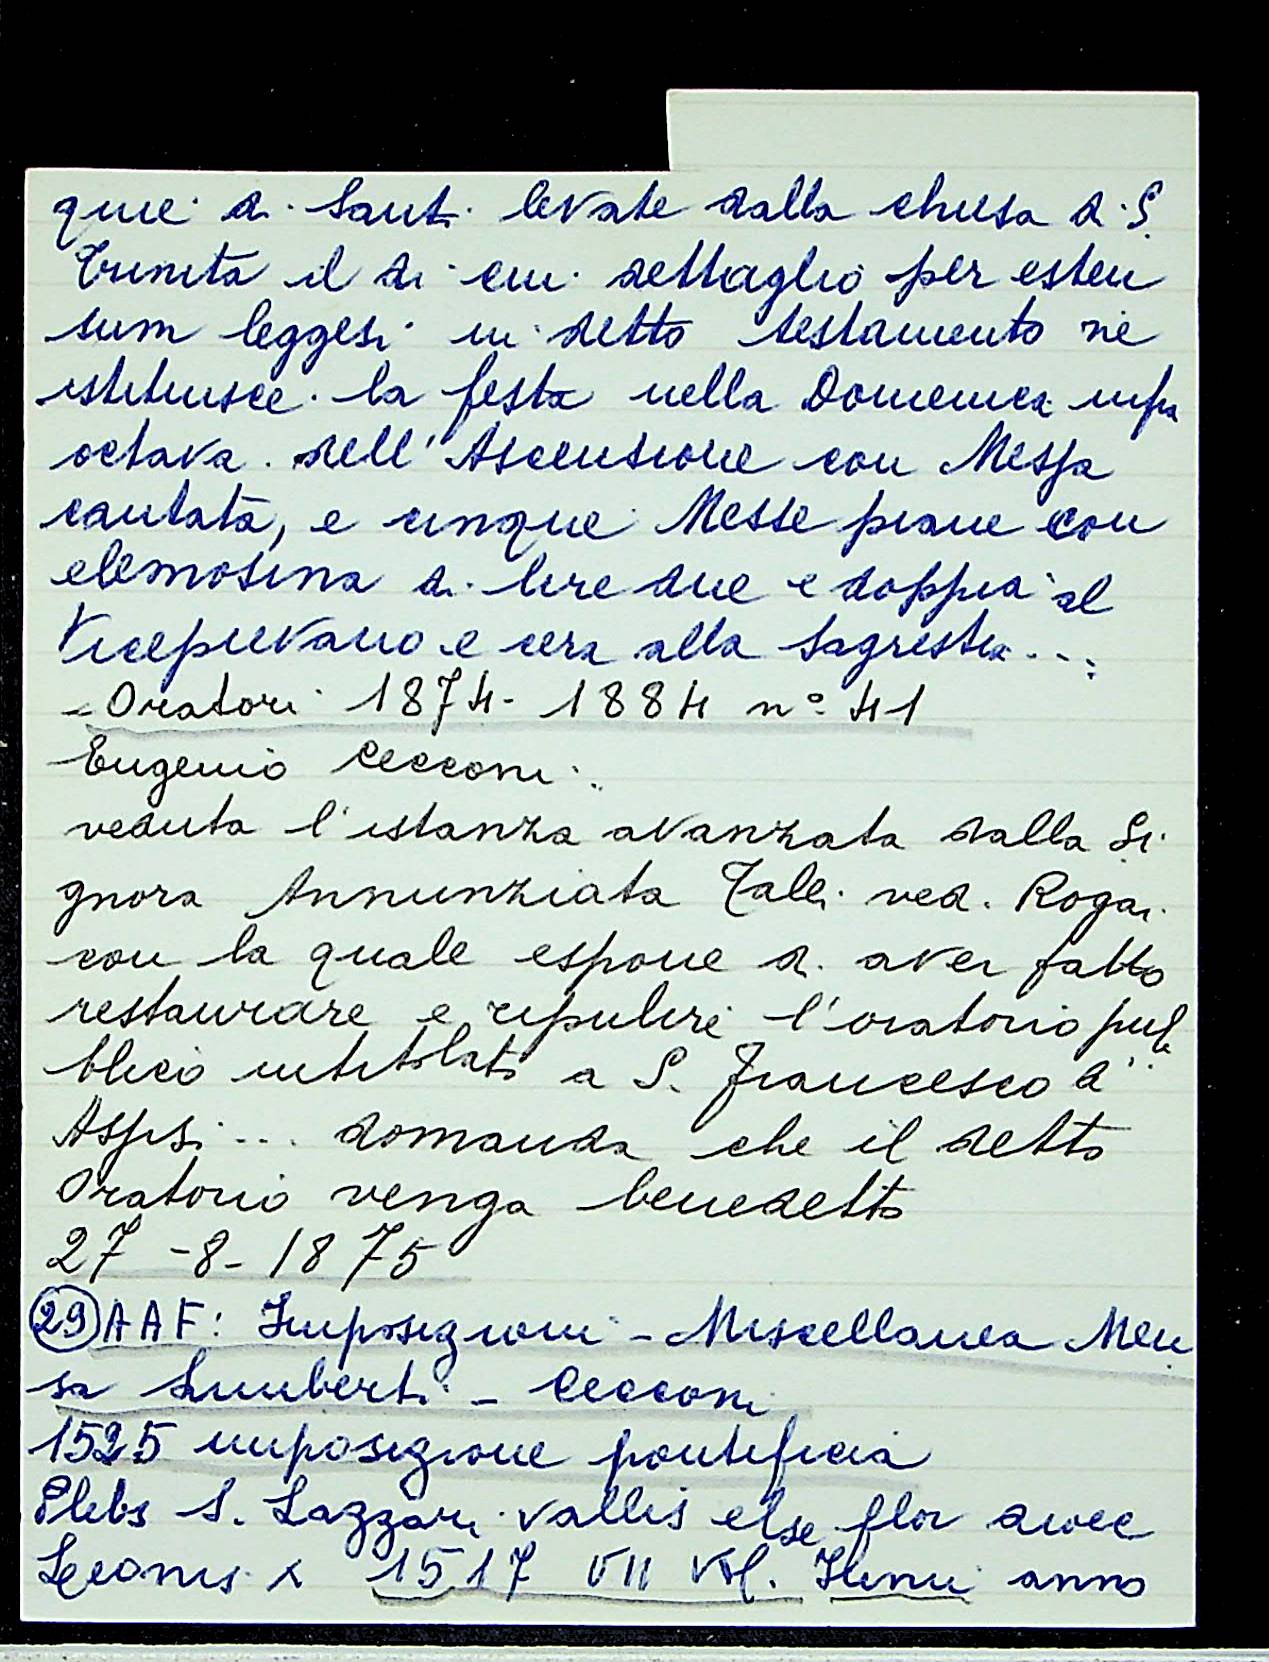 quie di Santi levate dalla chiesa di S.
Trinità il di cui dettaglio per esten
sum leggesi in detto testamento ne
istituisce la festa nella Domenica infra
octava dell'Ascensione con Messa
cantata, e cinque Messe piane con
elemosina di lire due e doppia al
Vicepievano e cera alla Sagrestia...
- Oratori 1874-1884 n° 41
Eugenio Cecconi..
veduta l'istanza avanzata dalla Si
gnora Annunziata Talli ved. Rogai
con la quale espone di aver fatto
restaurare e ripulire l'oratorio pub
blico intitolato a S. Francesco d'
Assisi... domanda che il detto
Oratorio venga benedetto
27-8-1875
(29) AAF: Imposizioni - Miscellanea Men
sa Limberti - Cecconi
1525 imposizione pontificia
Plebs S. Lazzari vallis else flor dioec
Leonis X 1517 VII Kal. anno